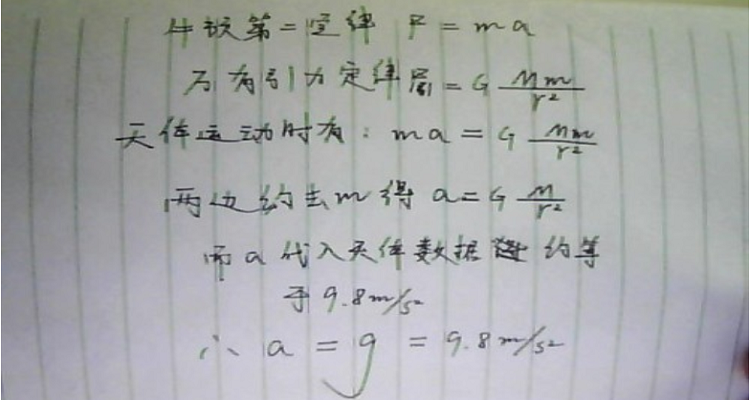 牛顿第二定律 F = ma
万有引力定律 F引 = G Mm/r²
天体运动时有: ma = G Mm/r²
两边约去m得 a = G M/r²
而a代入天体数据 约等
于9.8m/s²
∴ a = g = 9.8m/s²